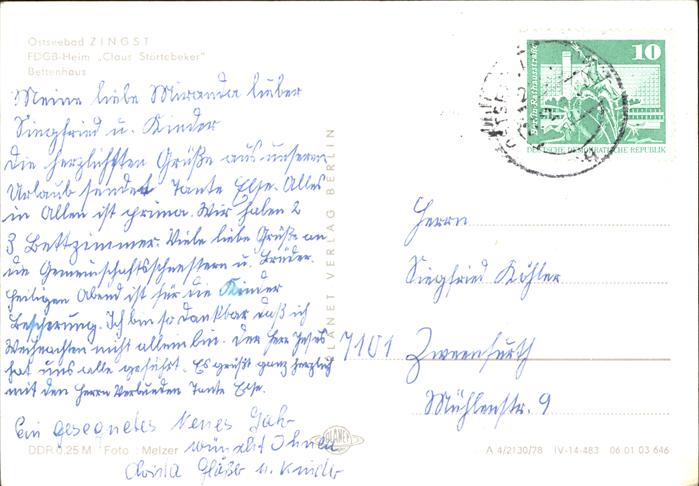 Ostseebad ZINGST
FDGB-Heim „Claus Störtebeker"
Bettenhaus
Meine liebe Miranda lieber
Siegfried u. Kinder
Die herzlichsten Grüße aus unseren
Urlaub sendet Tante Else. Alles
in Allen ist prima. Wir haben 2
3 Bettzimmer. Viele liebe Grüße an
die Gemeinschaftsschwestern u. Brüder.
Heiligen Abend ist für die Kinder
Bescherung. Ich bin so dankbar daß ich
Weihnachten nicht allein bin. Der Herr Jesus
hat uns alle geführt. Es grüßt ganz herzlich
mit den Herrn Verbunden Tante Else.
Ein gesegnetes Neues Jahr
wünscht Ihnen
Gläß u. Kinder
DDR 0.25 M Foto: Melzer
PLANET VERLAG BERLIN
PLANET
10
Berlin-Rathausstraße
DEUTSCHE DEMOKRATISCHE REPUBLIK
Herrn
Siegfried Köhler
7101 Zweenfurth
Mühlenstr. 9
A 4/2130/78 IV-14-483 06 01 03 646